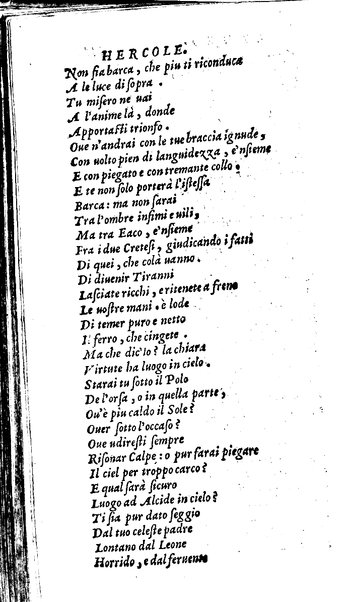 HERCOLE.
Non fia barca, che piu ti riconduca
A le luce di sopra.
Tu misero ne uai
A l'anime là, donde
Apportasti trionfo.
Oue n'andrai con le tue braccia ignude,
Con uolto pien di languidezza, e'nsieme
E con piegato e con tremante collo.
E te non solo porterà l'istessa
Barca: ma non sarai
Tra l'ombre infimi e uili,
Ma tra Eaco, e'nsieme
Fra i due Cretesi, giudicando i fatti
Di quei, che colà uanno.
Di diuenir Tiranni
Lasciate ricchi, e ritenete a freno
Le uostre mani. è lode
Di temer puro e netto
Il ferro, che cingete.
Ma che dic'io? la chiara
Virtute ha luogo in cielo.
Starai tu sotto il Polo
De l'orsa, o in quella parte,
Ou'è piu caldo il Sole?
Ouer sotto l'occaso?
Oue udiresti sempre
Risonar Calpe: o pur farai piegare
Il ciel per troppo carco?
E qual sarà sicuro
Luogo ad Alcide in cielo?
Ti sia pur dato seggio
Dal tuo celeste padre
Lontano dal Leone
Horrido, e dal feruente